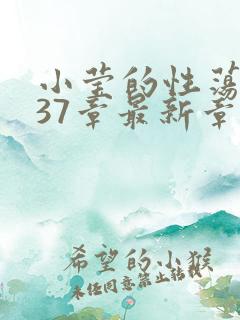 小莹的性荡
37章最新章
希望的小猴
未经同意禁止转载